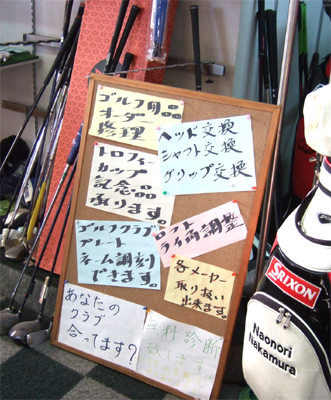 ゴルフ用品
オーダー
修理
ヘッド交換
シャフト交換
グリップ交換
トロフィー
カップ
記念品
承ります。
ロフト
ライ角調整
ゴルフクラブ
プレート
ネーム調刻
できます。
各メーカー
取り扱い
出来ます。
あなたの
クラブ
合ってます?
無料診断
致します
SRIXON
Naonori
Nakamura